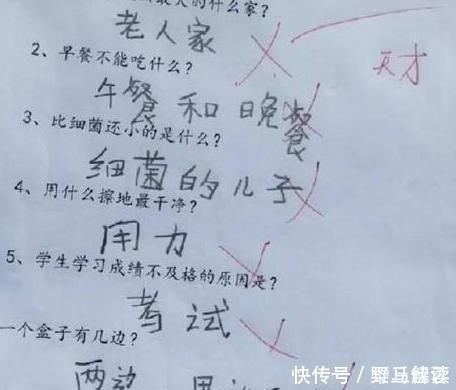 最大的什么家?
老人家
天才
2、早餐不能吃什么?
午餐 和 晚餐
3、比细菌还小的是什么?
细菌的儿子
4、用什么擦地最干净?
用力
5、学生学习成绩不及格的原因是?
考试
一个盒子有几边?
两边
快传号/